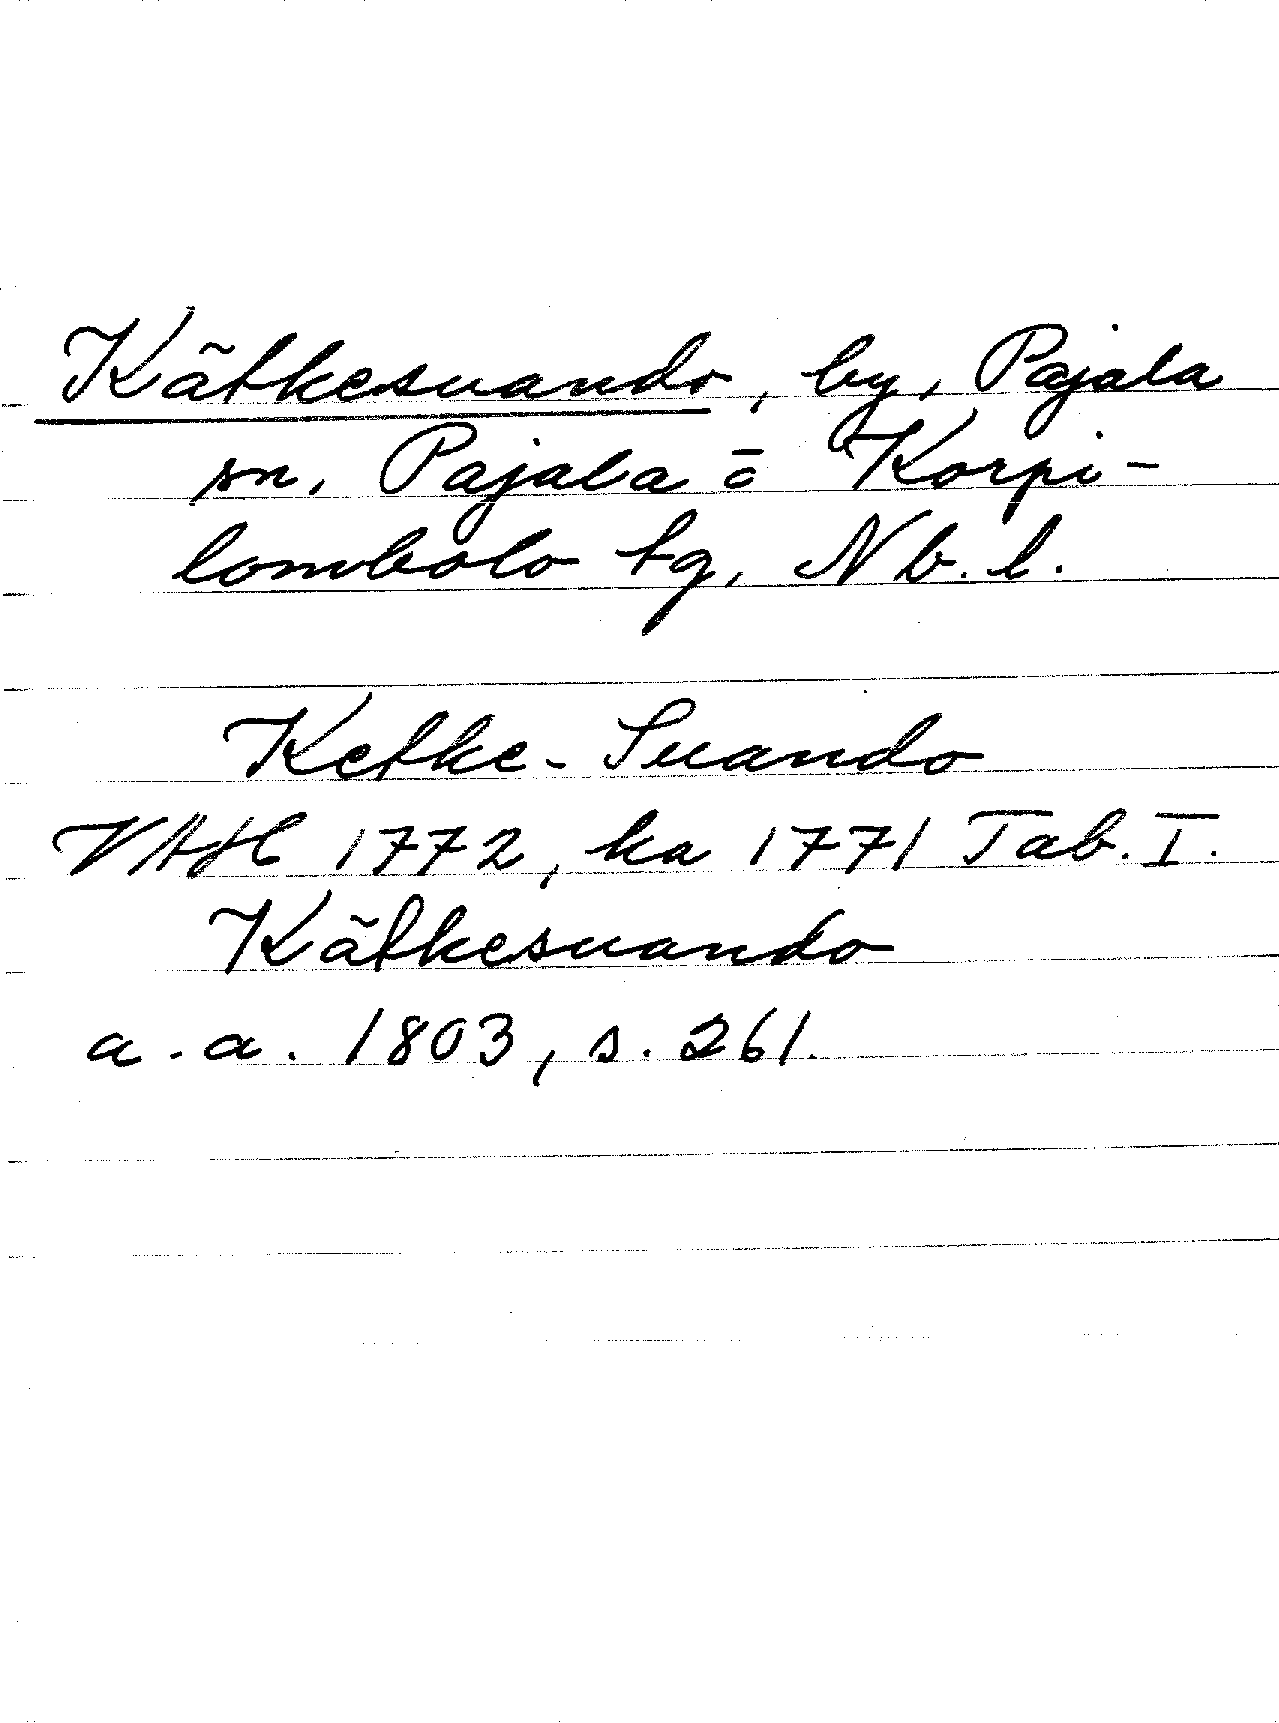 Kätkesuando, by, Pajala
sn, Pajala o Korpi-
lombolo tg, Nb. l.
Ketke-Suando
VAH 1772, ka 1771 Tab. I.
Kätkesuando
a. a. 1803, s. 261.